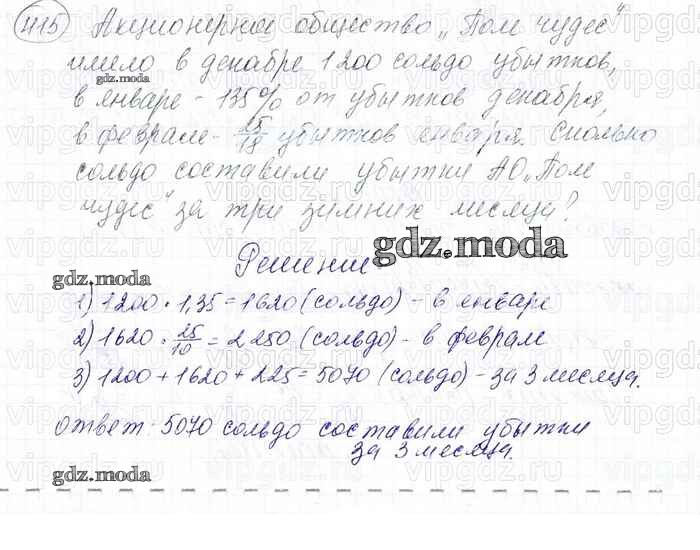 415 Акционерное общество „Поле чудес“
имело в декабре 1200 сольдо убытков,
gdz.moda
в январе - 135% от убытков декабря,
в феврале - 25/18 убытков января. Сколько
сольдо составили убытки АО „Поле
чудес“ за три зимних месяца?
gdz.moda
Решение
gdz.moda
1) 1200 · 1,35 = 1620 (сольдо) - в январе
2) 1620 · 25/10 = 2250 (сольдо) - в феврале
3) 1200 + 1620 + 225 = 5070 (сольдо) - за 3 месяца.
gdz.moda
ответ: 5070 сольдо составили убытки
за 3 месяца.
gdz.moda